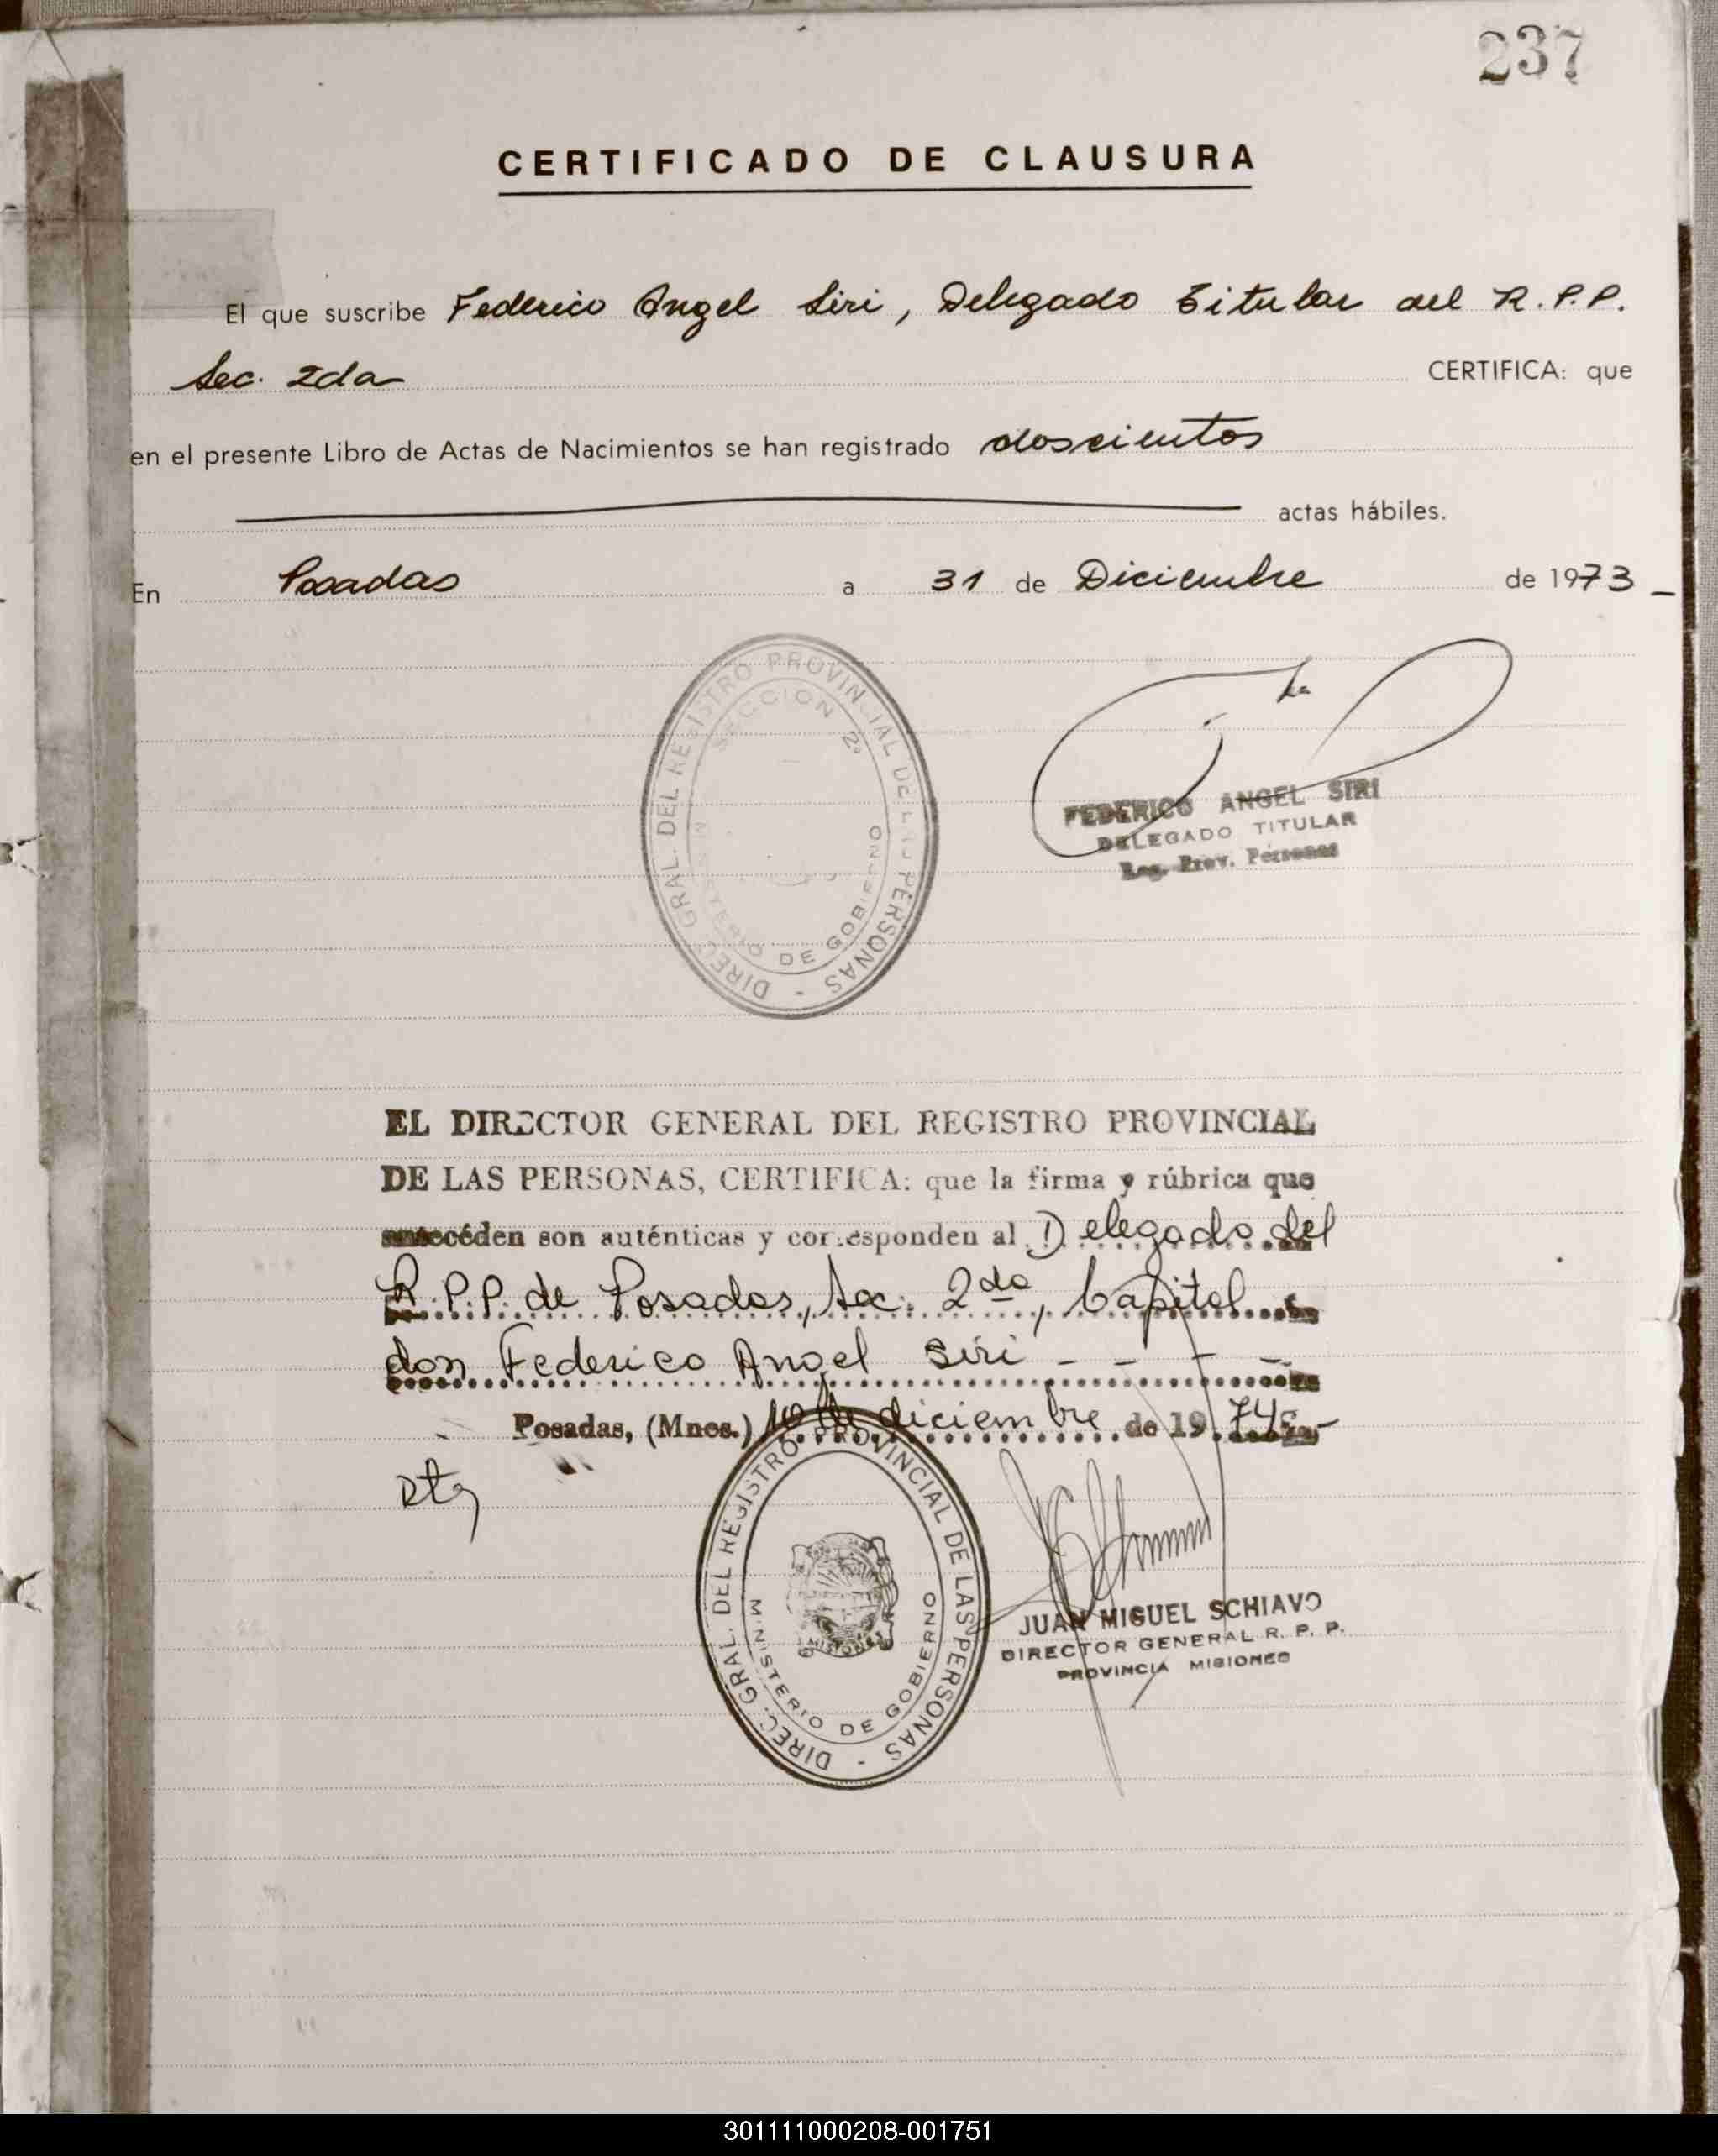 237
CERTIFICADO DE CLAUSURA
El que suscribe Federico Angel Siri, Delegado Titular del R.P.P.
Sec. 2da CERTIFICA: que
en el presente Libro de Actas de Nacimientos se han registrado doscientos
actas hábiles.
En Posadas a 31 de Diciembre de 1973 -
DIREC. GRAL. DEL REGISTRO PROVINCIAL DE LAS PERSONAS -
SECCION 2ª
MINISTERIO DE GOBIERNO
FEDERICO ANGEL SIRI
DELEGADO TITULAR
Reg. Prov. Personas
EL DIRECTOR GENERAL DEL REGISTRO PROVINCIAL
DE LAS PERSONAS, CERTIFICA: que la firma y rúbrica que
antecéden son auténticas y corresponden al Delegado del
R.P.P. de Posadas, Sec. 2da, Capital
don Federico Angel Siri - - - -
Posadas, (Mnes.) 10 de diciembre de 1974.-
DIREC. GRAL. DEL REGISTRO PROVINCIAL DE LAS PERSONAS -
MINISTERIO DE GOBIERNO
MISIONES
JUAN MIGUEL SCHIAVO
DIRECTOR GENERAL R. P. P.
PROVINCIA MISIONES
301111000208-001751